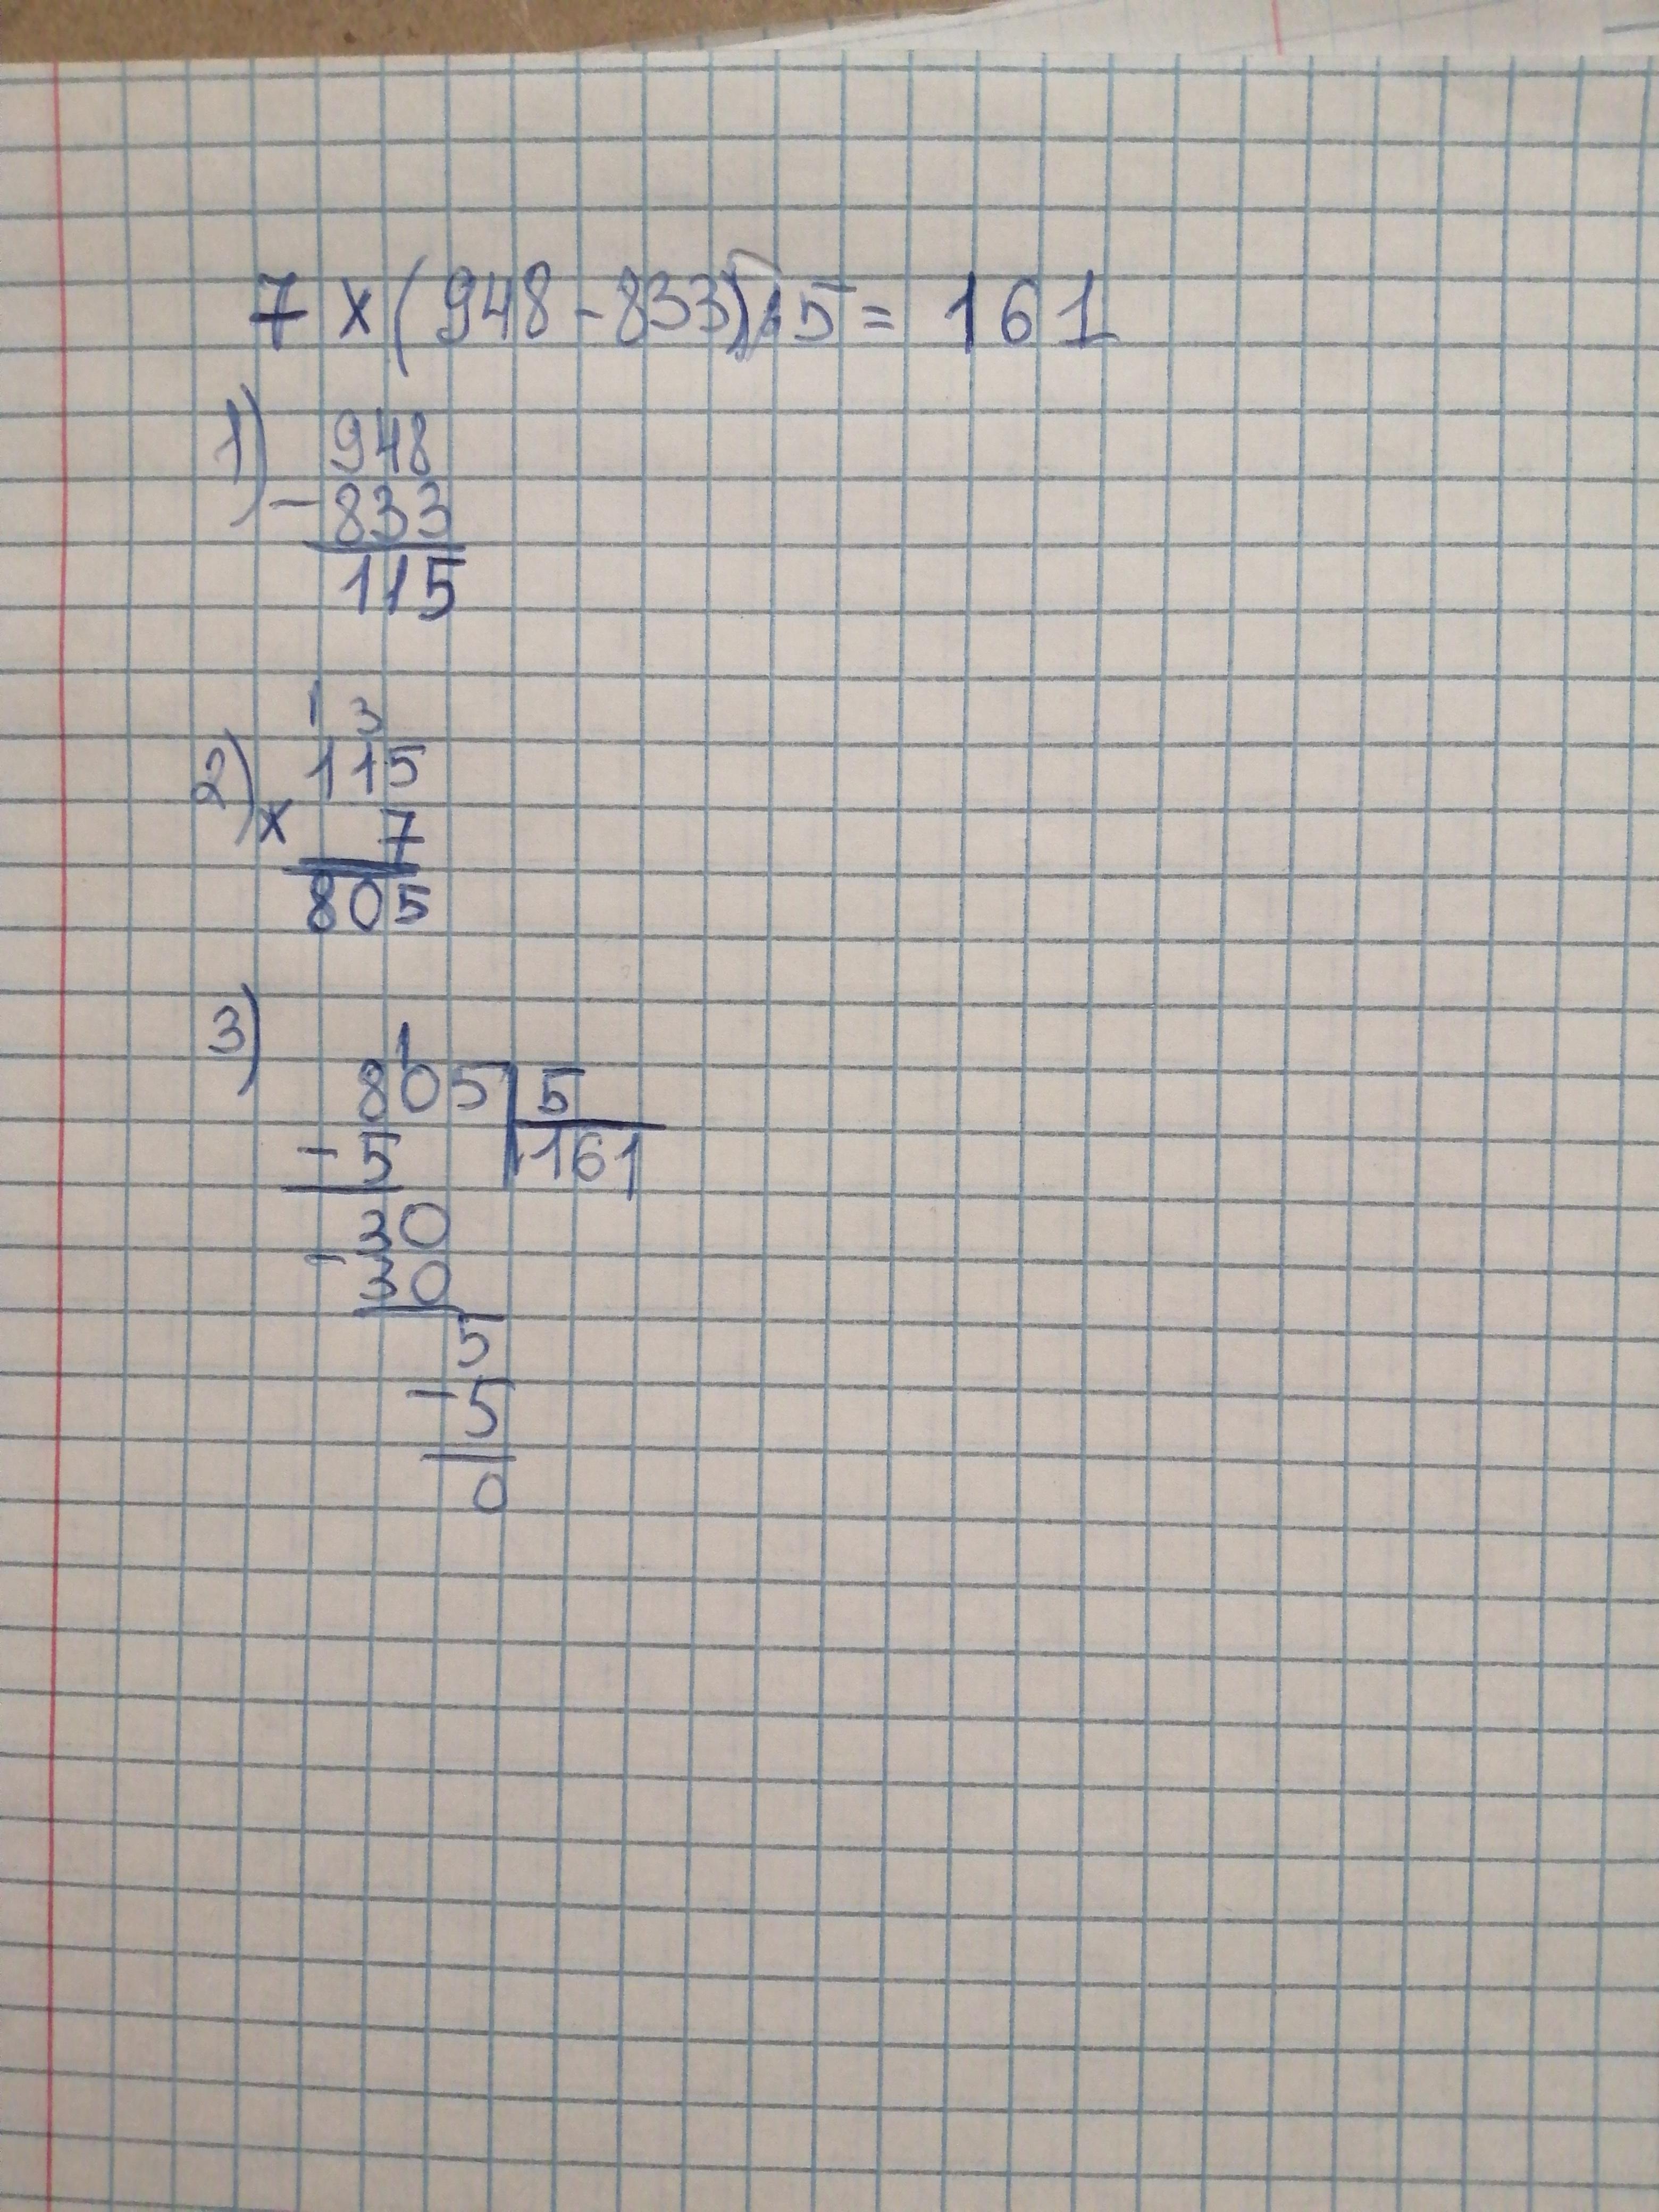 7 x (948-833):5= 161
1) 948
-833
115
1 3
2) 115
x 7
805
3)
1
805 5
-5 161
30
-30
5
-5
0